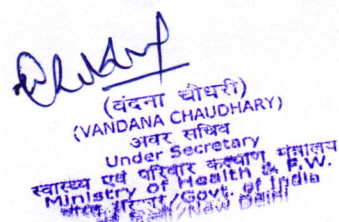 (वंदना चौधरी)
(VANDANA CHAUDHARY)
अवर सचिव
Under Secretary
स्वास्थ्य एवं परिवार कल्याण मंत्रालय
Ministry of Health & F.W.
भारत सरकार/Govt. of India
/New Delhi